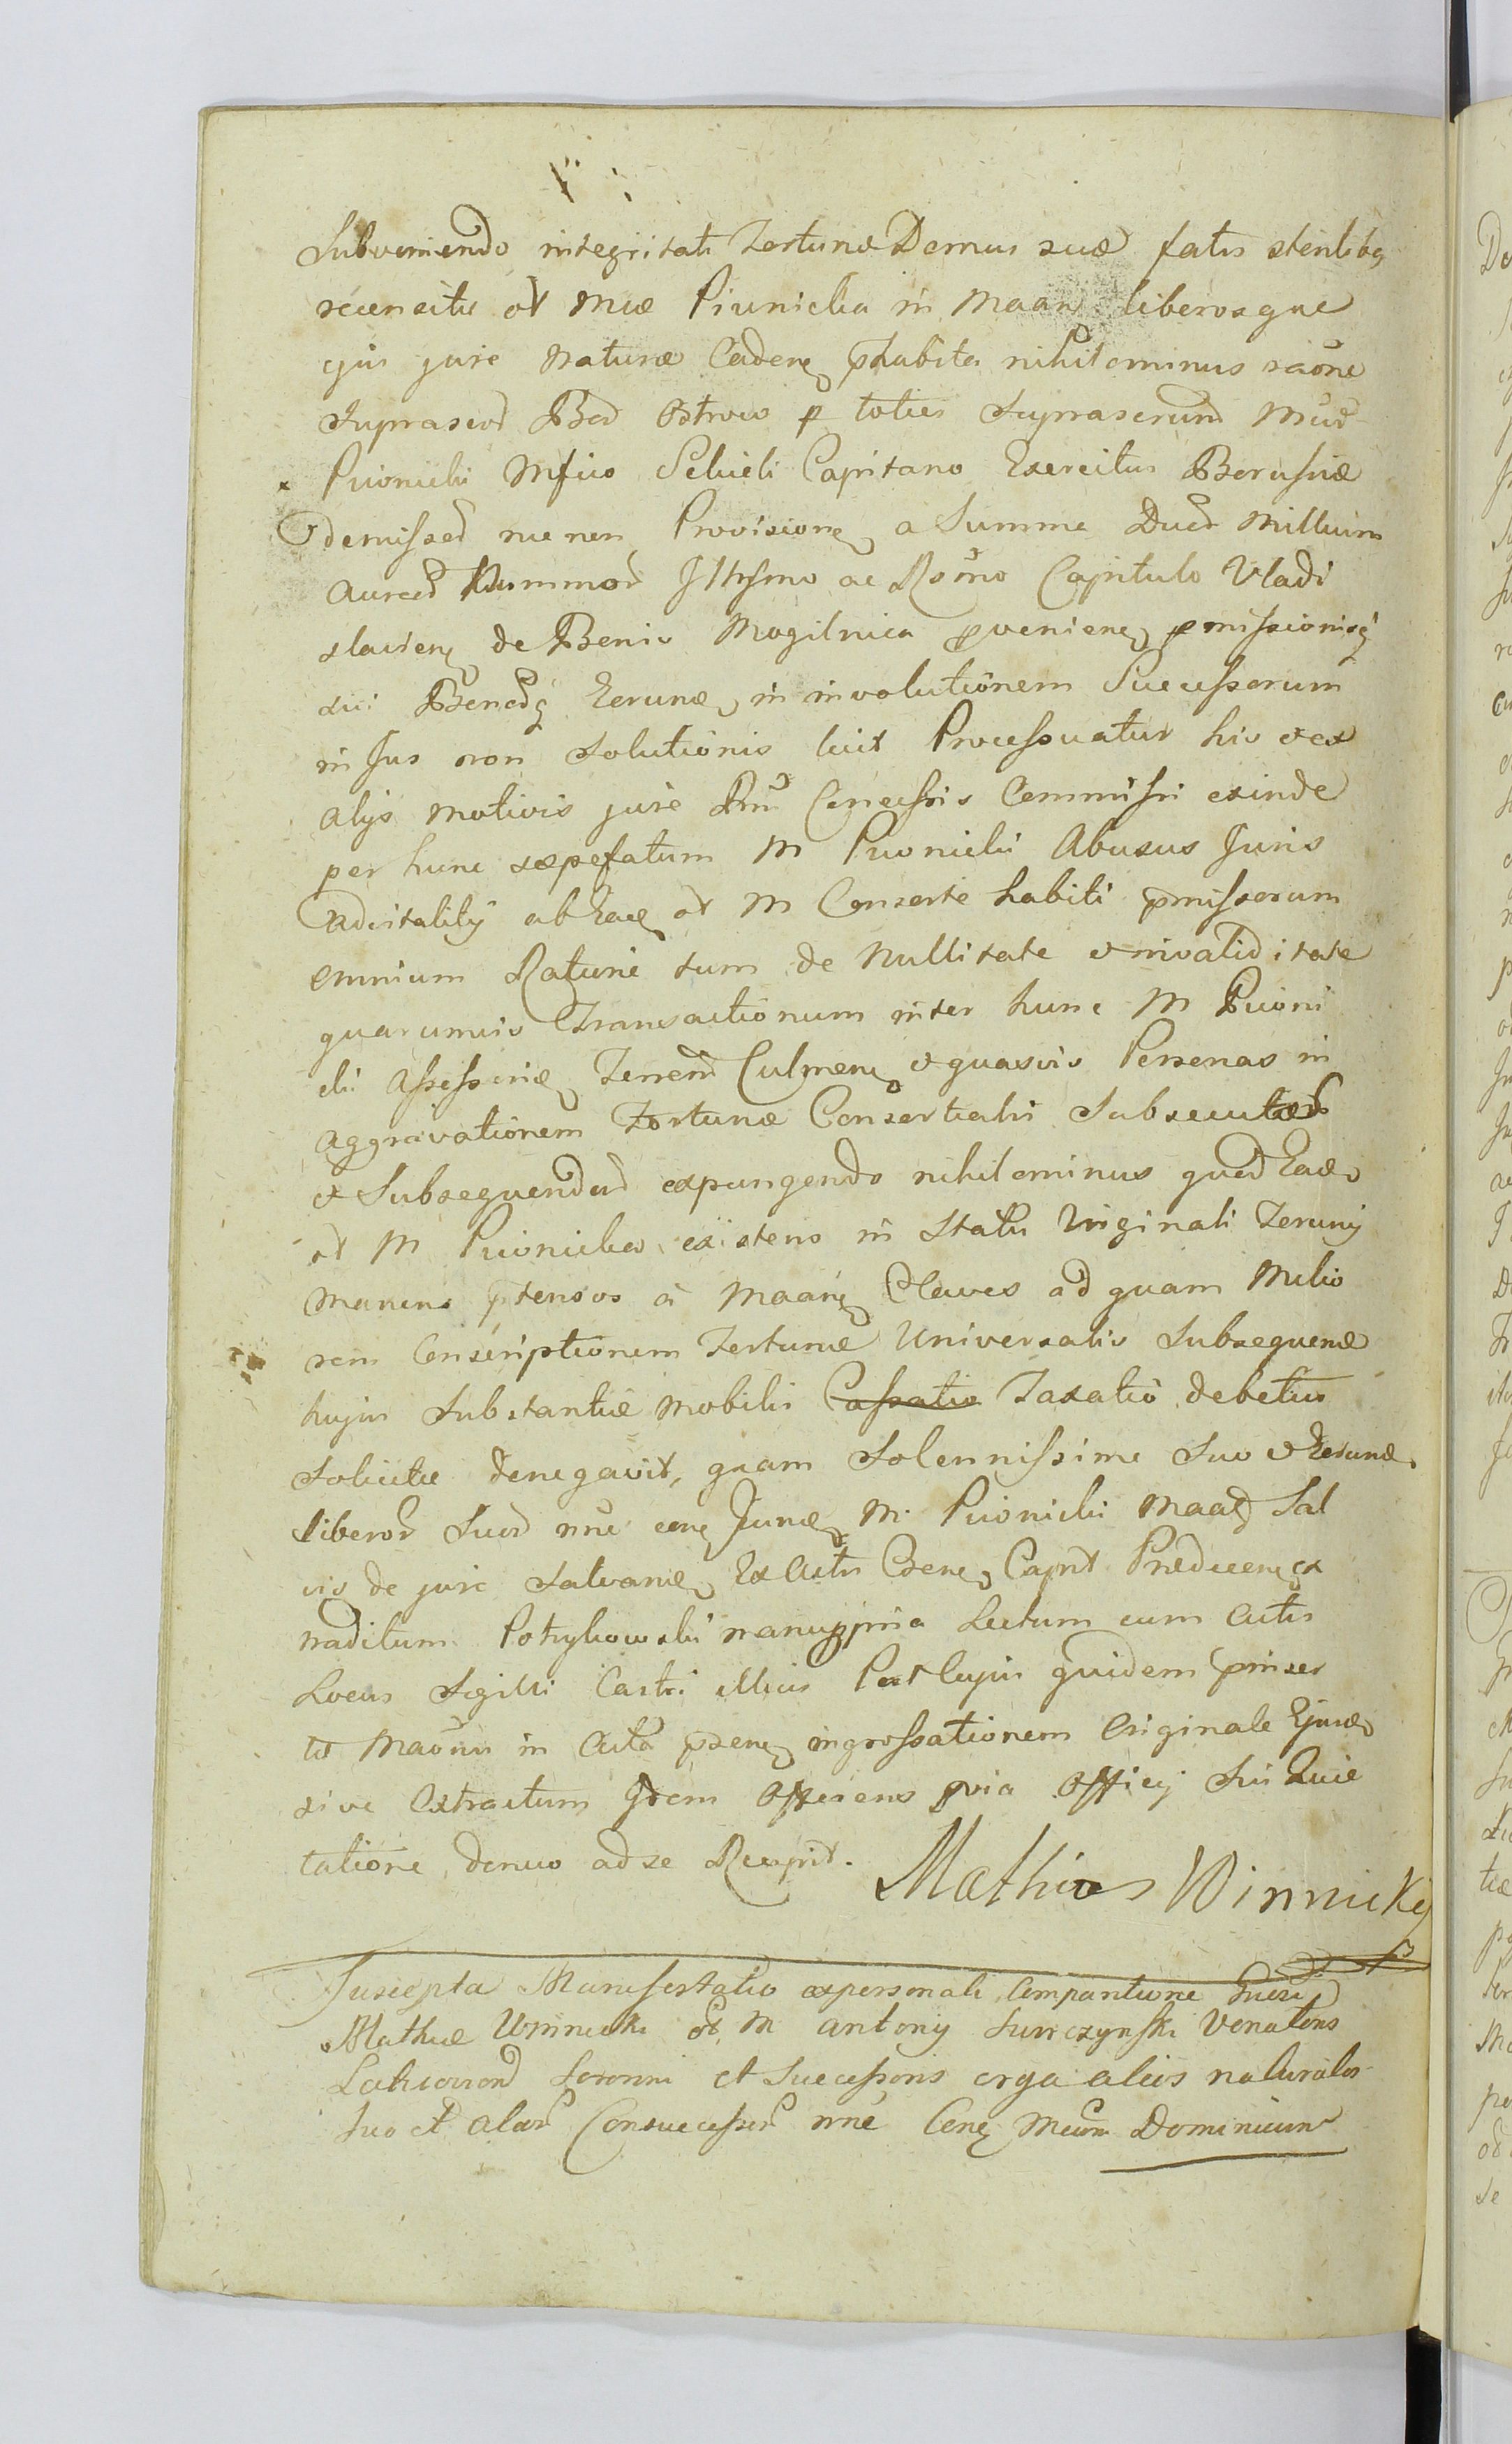 Subveniendo integritati Fortunæ Domus suæ fatis sterilibq
recensitæ et Mcæ Piwnicka in Maan liberosque
ejus jure naturæ Caden phabita nihilominus raõne
suprascrod Bod Ostrow p toties suprascrum Mcus
Piwnicki Mfico Selicki Capitano Exercitus Borussiæ
demissod nec non Provisione a Summa Duod Millium
Aureod Nummod Illrsmo ac Rsmo Capitulo Vladi
slavien de Bonis Mogilnica provenien pmissionisq
sui Bonodq eorum, in involutionem Successorum
in Jus non solutionis luit Processuatur his et ex
alijs motivis jure Concessis Commissi exinde
per hunc sæpefatum M Piwnicki Abusus Juris
advitalitij ab ead et M Consorte habiti pmissorum
omnium Ratione tum de Nullitate et invaliditate
quarumvis Transactionum inter hunc M Piwni
cki Assessoriæ Terren Culmen et quasvis Personas in
aggravationem Fortunæ Consortialis Subsecutad
et Subsequendad expungendo nihilominus quod Eade
et M Piwnicka existens in Statu Virginali
manens ptensos a Maan Claves ad quam Melio
rem Conscriptionem Fortunæ Universalis Subsequen
hujus Substantiæ mobilis Cassatio Taxatio debetur
solicite denegavit, quam solennissime suo et
liberod suod nne M Piwnicki Maad Sal
vis de jure salvan Ex Actis Capit
traditum Potrykowski manuppria Lectum cum Actis
Locus Sigilli Castri illius Post cujus quidem pinser
to Maõnis in Acta psen ingrossationem Originale Ejusd
sive Extractum Idem Offerens pvia Officij sui Quie
tatione denuo ad se Recepit. Mathias Winnicki
Suscepta Manifestatio ex personali Comparitione
Mathiæ Winnicki et M Antonij Venatoris
et Successoris erga alios naturales
suo et aliar Consuccessor nne Cen Dominicum